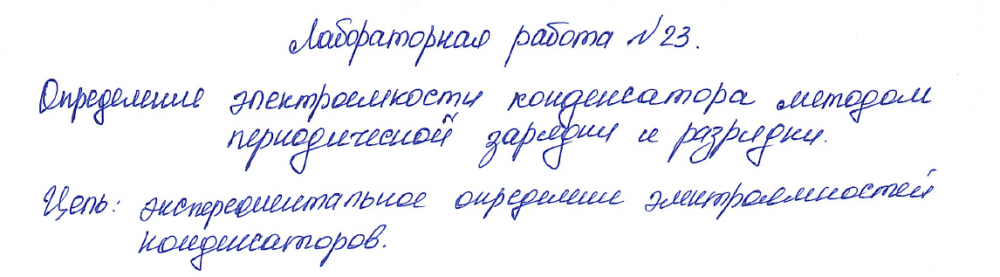 Лабораторная работа №23.
Определение электроемкости конденсатора методом
периодической зарядки и разрядки.
Цель: экспериментальное определение электроемкостей
конденсаторов.